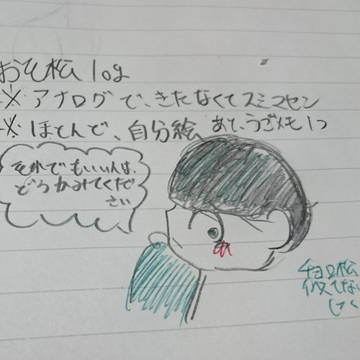 おそ松log
※アナログで、きたなくてスミマセン
※ほとんど、自分絵 あと、うごメモ1つ
それでもいい人は、
どうかみてくだ
さい
チョロ松
似てない
して